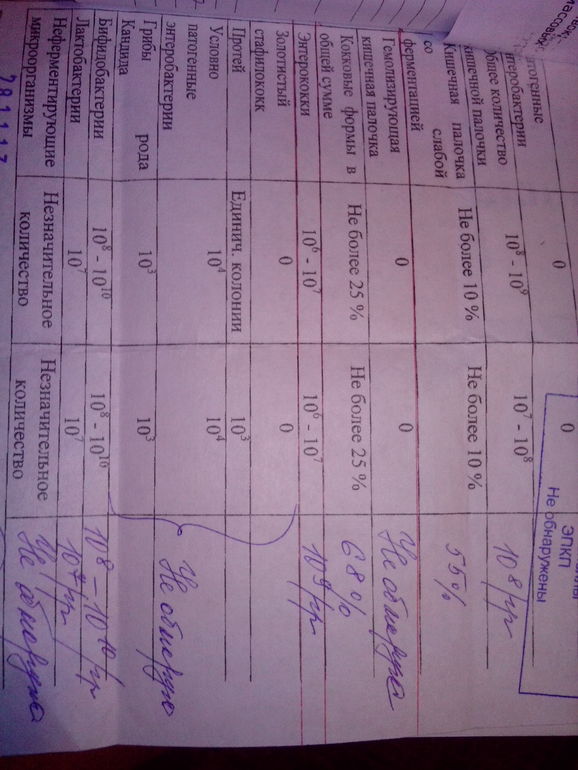 патогенные
энтеробактерии 0 0 ЭПКП
Не обнаружены
Общее количество
кишечной палочки 10⁸ - 10⁹ 10⁷ - 10⁸ 10⁸/гр
Кишечная палочка
со слабой
ферментацией Не более 10 % Не более 10 % 55%
Гемолизирующая
кишечная палочка 0 0 Не обнаруж
Кокковые формы в
общей сумме Не более 25 % Не более 25 % 68%
Энтерококки 10⁶ - 10⁷ 10⁶ - 10⁷ 10⁹/гр
Золотистый
стафилококк 0 0
Протей Единич. колонии 10³
Условно
патогенные
энтеробактерии 10⁴ 10⁴ Не обнаруж
Грибы рода
Кандида 10³ 10³
Бифидобактерии 10⁸ - 10¹⁰ 10⁸ - 10¹⁰ 10⁸ - 10¹⁰/гр
Лактобактерии 10⁷ 10⁷ 10⁷/гр
Неферментирующие
микроорганизмы Незначительное
количество Незначительное
количество Не обнаруж
281117